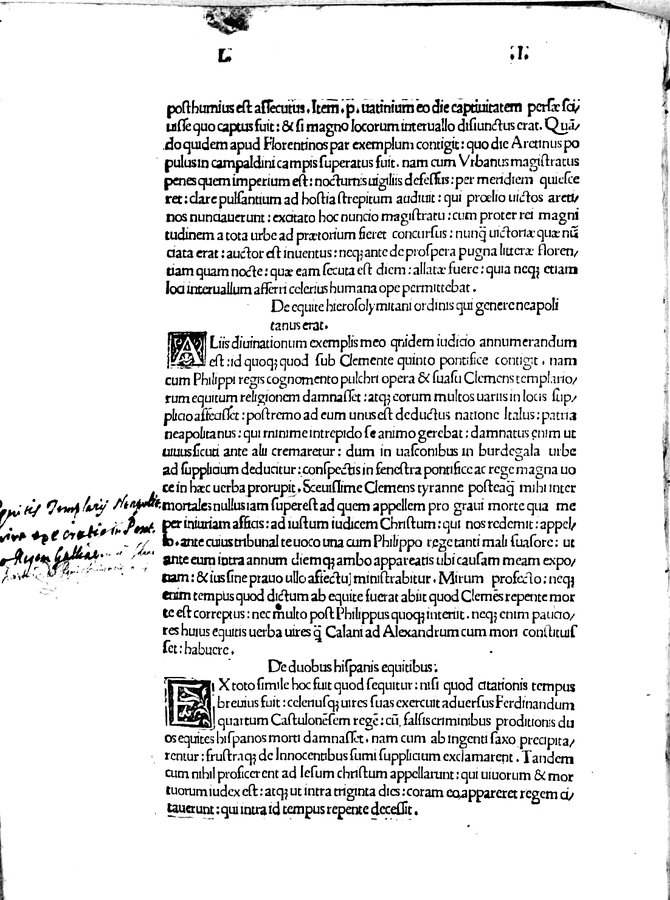 L. .I.
posthumius est assecutus. Item. p. uatinium eo die captiuitatem persæ sci/
uisse quo captus fuit: & si magno locorum interuallo disiunctus erat. Quā/
do quidem apud Florentinos par exemplum contigit: quo die Aretinus po
pulus in campaldini campis superatus fuit. nam cum Vrbanus magistratus
penes quem imperium est: nocturnis uigiliis defessus: per meridiem quiesce
ret: clare pulsantium ad hostia strepitum audiuit: qui prœlio uictos areti/
nos nunciauerunt: excitato hoc nuncio magistratu: cum propter rei magni
tudinem a tota urbe ad prætorium fieret concursus: nunq̃ uictoriæ quæ nū
ciata erat: auctor est inuentus: neq; ante de prospera pugna litteræ floren/
tiam quam nocte: quæ eam secuta est diem: allatæ fuere: quia neq; etiam
loci interuallum afferri celerius humana ope permittebat.
De equite hierosolymitani ordinis qui genere neapoli
tanus erat.
ALiis diuinationum exemplis meo quidem iudicio annumerandum
est: id quoq; quod sub Clemente quinto pontifice contigit. nam
cum Philippi regis cognomento pulchri opera & suasu Clemens templario/
rum equitum religionem damnasset: atq; eorum multos uariis in locis sup/
plicio affecisset: postremo ad eum unus est deductus natione Italus: patria
neapolitanus: qui minime intrepido se animo gerebat: damnatus enim ut
uiuus sicuti ante alii cremaretur: dum in uasconibus in burdegala urbe
ad supplicium deducitur: conspectis in fenestra pontifice ac rege magna uo
ce in hæc uerba prorupit. Sceuissime Clemens tyranne posteaq̃ mihi inter
mortales nullus iam superest ad quem appellem pro graui morte qua me
per iniuriam afficis: ad iustum iudicem Christum: qui nos redemit: appel/
lo. ante cuius tribunal te uoco una cum Philippo rege tanti mali suasore: ut
ante eum intra annum diemq; ambo appareatis ubi causam meam expo/
nam: & ius sine prauo ullo affectu ministrabitur. Mirum profecto: neq;
enim tempus quod dictum ab equite fuerat abiit quod Clemēs repente mor
te est correptus: nec multo post Philippus quoq; interiit. neq; enim paucio/
res huius equitis uerba uires q̃ Calani ad Alexandrum cum mori constituis
set: habuere.
De duobus hispanis equitibus:
EX toto simile hoc fuit quod sequitur: nisi quod citationis tempus
breuius fuit: celeriusq; uires suas exercuit aduersus Ferdinandum
quartum Castulonēsem regē: cū falsis criminibus proditionis du
os equites hispanos morti damnasset. nam cum ab ingenti saxo precipita/
rentur: frustraq; de Innocentibus sumi supplicium exclamarent. Tandem
cum nihil proficerent ad Iesum christum appellarunt: qui uiuorum & mor
tuorum iudex est: atq; ut intra triginta dies: coram eo appareret regem ci/
tauerunt: qui intra id tempus repente decessit.
Templarij Neapolit.
execratio in Pont.
Regem Galliæ